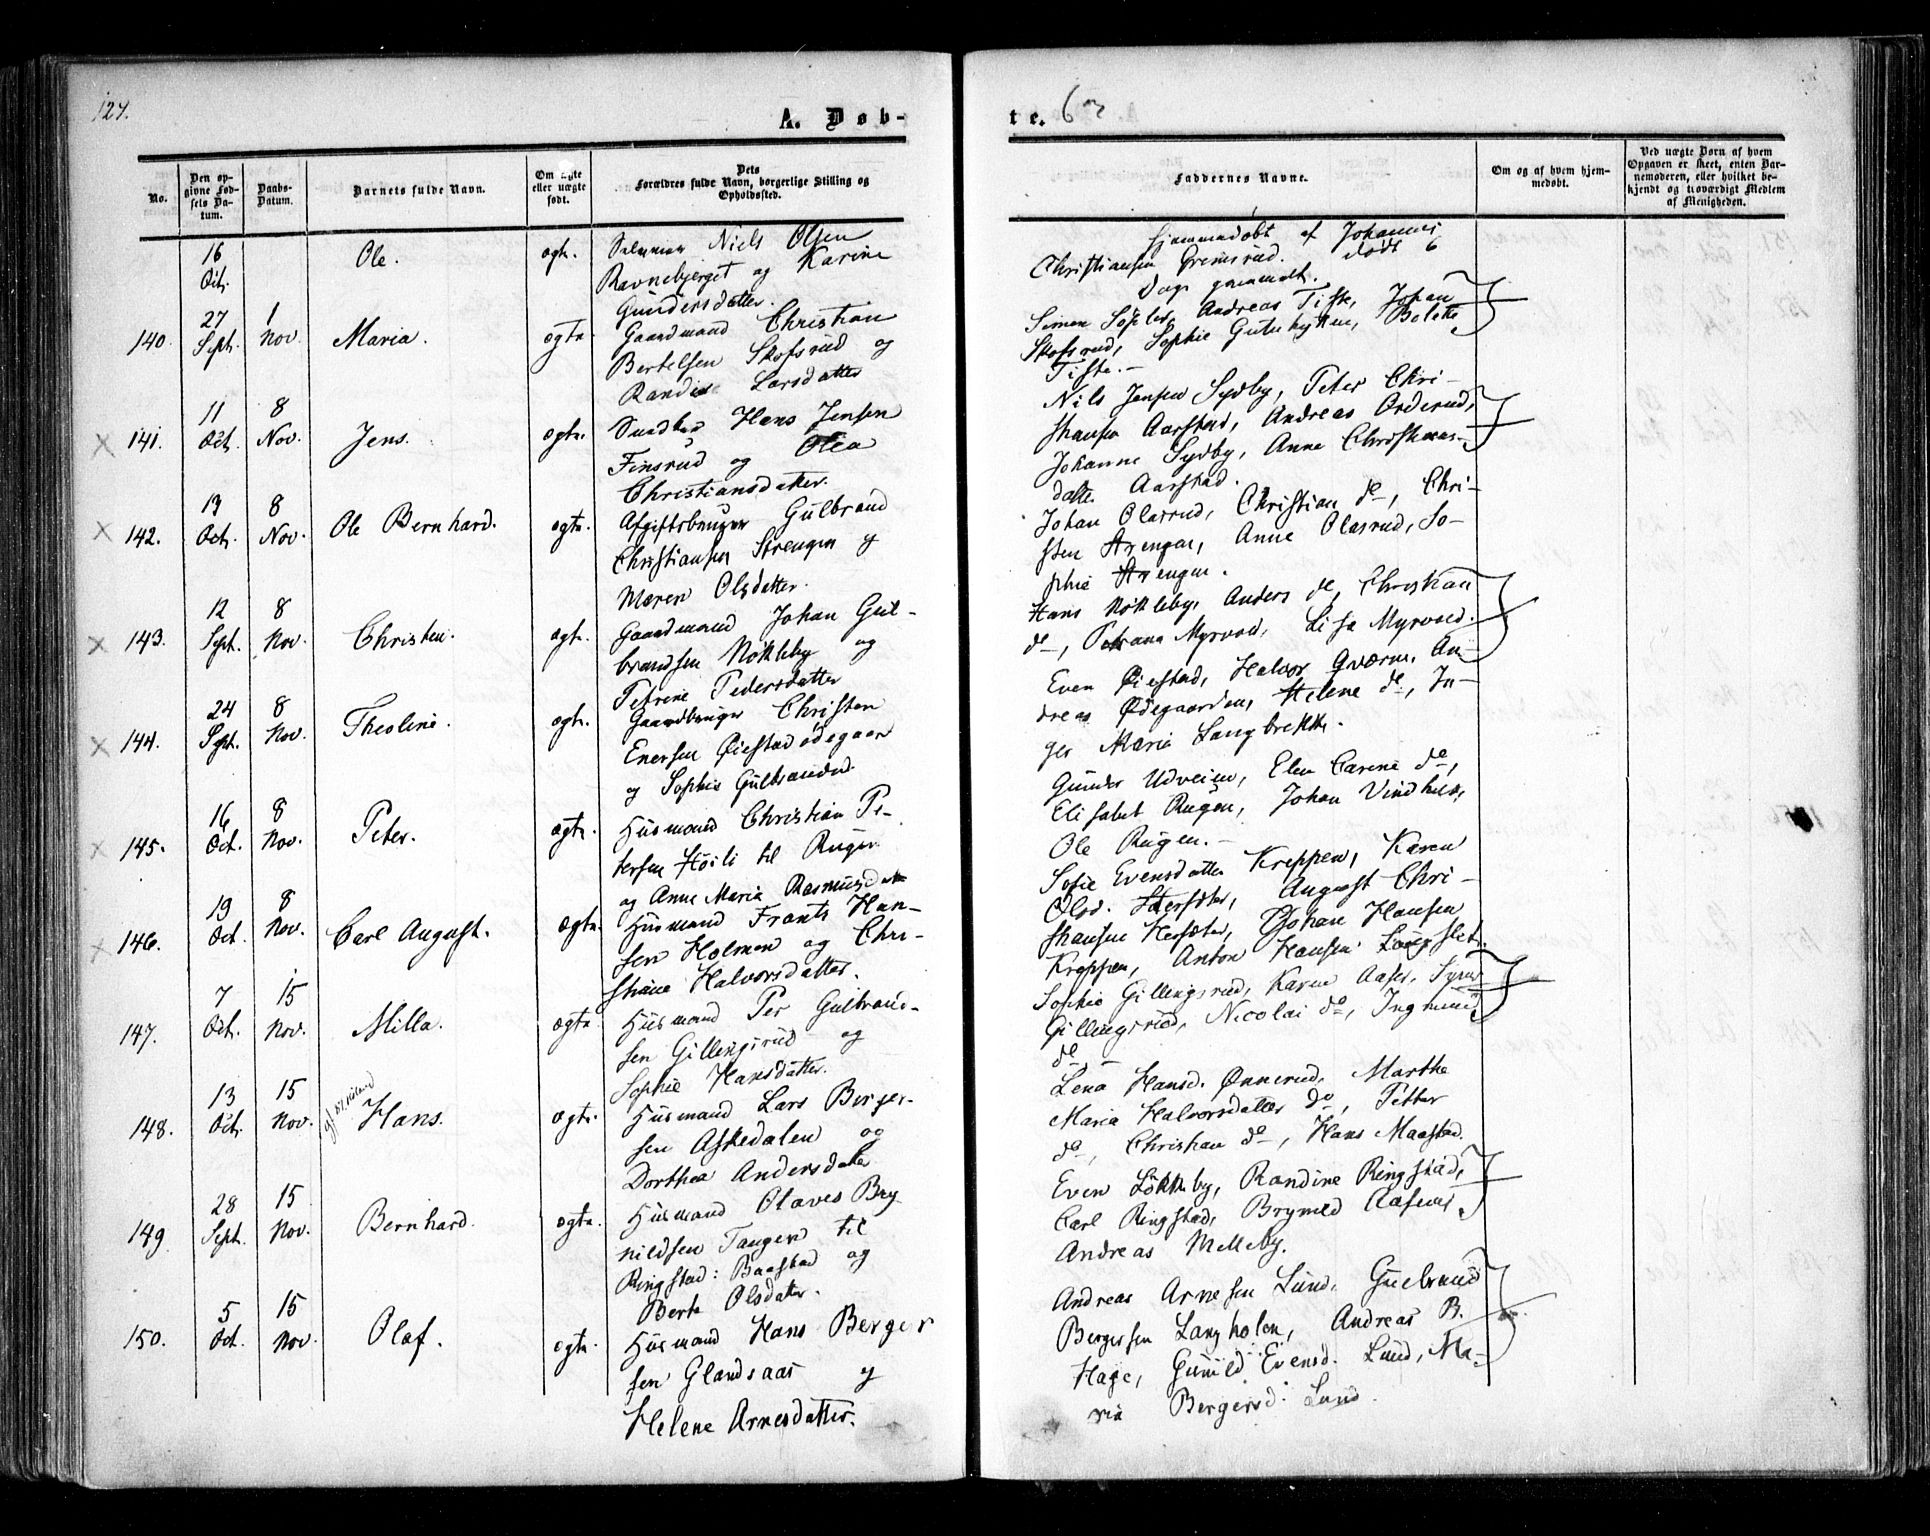 127.
A. Døb-
No.
Den opgivne Fødsels Datum.
Daabs-Datum.
Barnets fulde Navn.
Om ægte eller uægte født.
Dets Forældres fulde Navn, borgerlige Stilling og Opholdssted.
16 Oct. Ole. ægte. Niels Olsen
Ravnebjerget og Karine
Gundersdatter.
140. 27 Sept. 1 Nov. Maria. ægte Gaardmand Christian
Bertelsen Skofsrud og
Randine Larsdatter
141. 11 Oct. 8 Nov. Jens. ægte. Hans Jensen
Finsrud og Olea
Christiansdatter.
142. 13 Oct. 8 Nov. Ole Bernhard. ægte. Afgiftsbruger Gulbrand
Christiansen Strengen og
Maren Olsdatter.
143. 12 Sept. 8 Nov. Christen. ægte. Gaardmand Johan Gul-
brandsen Nøkleby og
Petrine Pedersdatter
144. 24 Sept. 8 Nov. Theoline. ægte. Gaardbruger Christen
Enersen Øiestad ødegaar
og Sophie Gulbrandsd.
145. 16 Oct. 8 Nov. Peter. ægte. Husmand Christian Pe-
tersen Høili til Rugen
og Anne Maria Rasmusdatter
146. 19 Oct. 8 Nov. Carl August. ægte. Husmand Frants Han-
sen Holmen og Chri-
stiane Halvorsdatter.
147. 7 Oct. 15 Nov. Milla. ægte. Husmand Per Gulbrand-
sen Gillingsrud og
Sophie Hansdatter.
148. 13 Oct. 15 Nov. Hans. ægte. Husmand Lars Berger-
sen Askedalen og
Dorthea Andersdatter
149. 28 Sept. 15 Nov. Bernhard. ægte. Husmand Olaves Bry
nildsen Tangen til
Ringstad: Baastad og
Berte Olsdatter.
150. 5 Oct. 15 Nov. Olaf. ægte. Husmand Hans Berger
sen Glandsaas og
Helene Arnesdatter.
te.
Faddernes Navne.
Om og af hvem hjemmedøbt.
Ved uægte Børn af hvem Opgaven er skeet, enten Barnemoderen, eller hvilket bekjendt og troværdigt Medlem af Menigheden.
Hjemmedøbt af Johannes
Christiansen Gremsrud. død 6
Dage gammelt.
Simen Andreas Tiste, Johan
Skofsrud, Sophie Bolette
Tiste. -
Nils Jensen Sydby, Peter Chri-
stiansen Aarstad, Andreas Orderud,
Johanne Sydby, Anne Christians-
datter Aarstad.
Johan Olasrud, Christian do, Chri-
sten Strengen, Anne Olasrud, So-
phie Strengen.
Hans Nøkleby, Anders do, Christian
do, Petrana Myrvold, Lisa Myrvold.
Even Øiestad, Halvor Qværne, An-
dreas Ødegaarden, Helene do, In-
ger Maria Langbrekke.
Gunder Udveien, Elen Carine do,
Elisabet Rugen, Johan Vindhus,
Ole Rugen. -
Sofie Evensdatter Kreppen, Karen
Olsd. Hersæter, August Chri-
stiansen Hersæter, Johan Hansen
Kreppen, Anton Hansen
Sophie Gillingsrud, Karen
Gillingsrud, Nicolai do, Ingmund
do -
Lena Hansd. Ønnerud, Marthe
Maria Halvorsdatter do, Petter
do, Christian do, Hans Maastad.
Even Løkkeby, Randine Ringstad,
Carl Ringstad, Brynild Aasens,
Andreas Melleby.
Andreas Arnesen Lund, Gulbrand
Bergersen Langholen, Andreas B.
Hage, Gunild Evensd. Lund, Ma-
ria Bergersd: Lund.